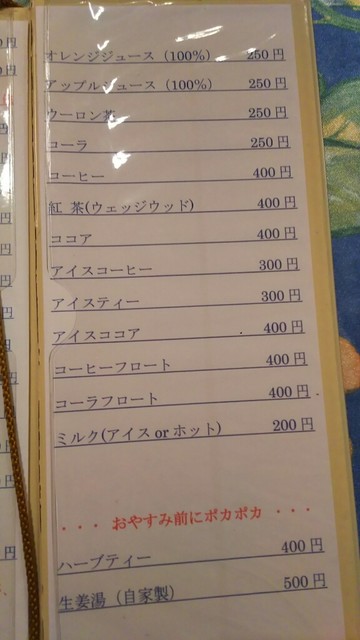 オレンジジュース（100%） 250円
アップルジュース（100%） 250円
ウーロン茶 250円
コーラ 250円
コーヒー 400円
紅 茶(ウェッジウッド) 400円
ココア 400円
アイスコーヒー 300円
アイスティー 300円
アイスココア 400円
コーヒーフロート 400円
コーラフロート 400円
ミルク(アイス or ホット) 200円
・・・ おやすみ前にポカポカ ・・・
ハーブティー 400円
生姜湯（自家製） 500円